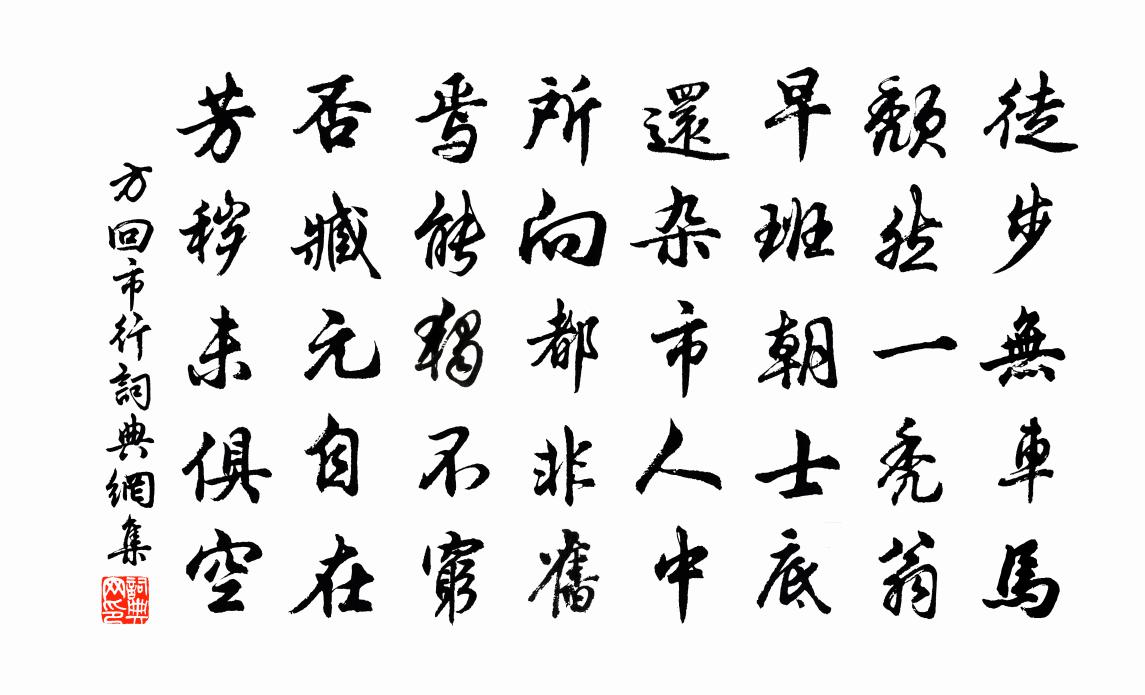 徒步無車馬
頹然一禿翁
早班朝士底
還杂市人中
所向都非舊
焉能獨不窮
否臧元自在
芳秽未俱空
方回市行詞典網集
詞典网印